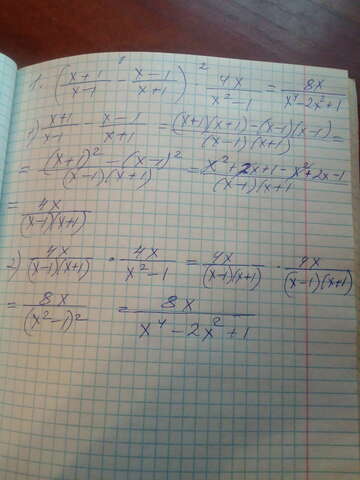 1. ( (x+1)/(x-1) - (x-1)/(x+1) ) · 4x/(x²-1) = 8x/(x⁴-2x²+1)
1) (x+1)/(x-1) - (x-1)/(x+1) = ((x+1)(x+1)-(x-1)(x-1))/((x-1)(x+1)) =
= ((x+1)²-(x-1)²)/((x-1)(x+1)) = (x²+2x+1-x²+2x-1)/((x-1)(x+1)
= 4x/((x-1)(x+1))
2) 4x/((x-1)(x+1)) · 4x/(x²-1) = 4x/((x-1)(x+1)) · 4x/((x-1)(x+1))
= 8x/(x²-1)² = 8x/(x⁴-2x²+1)